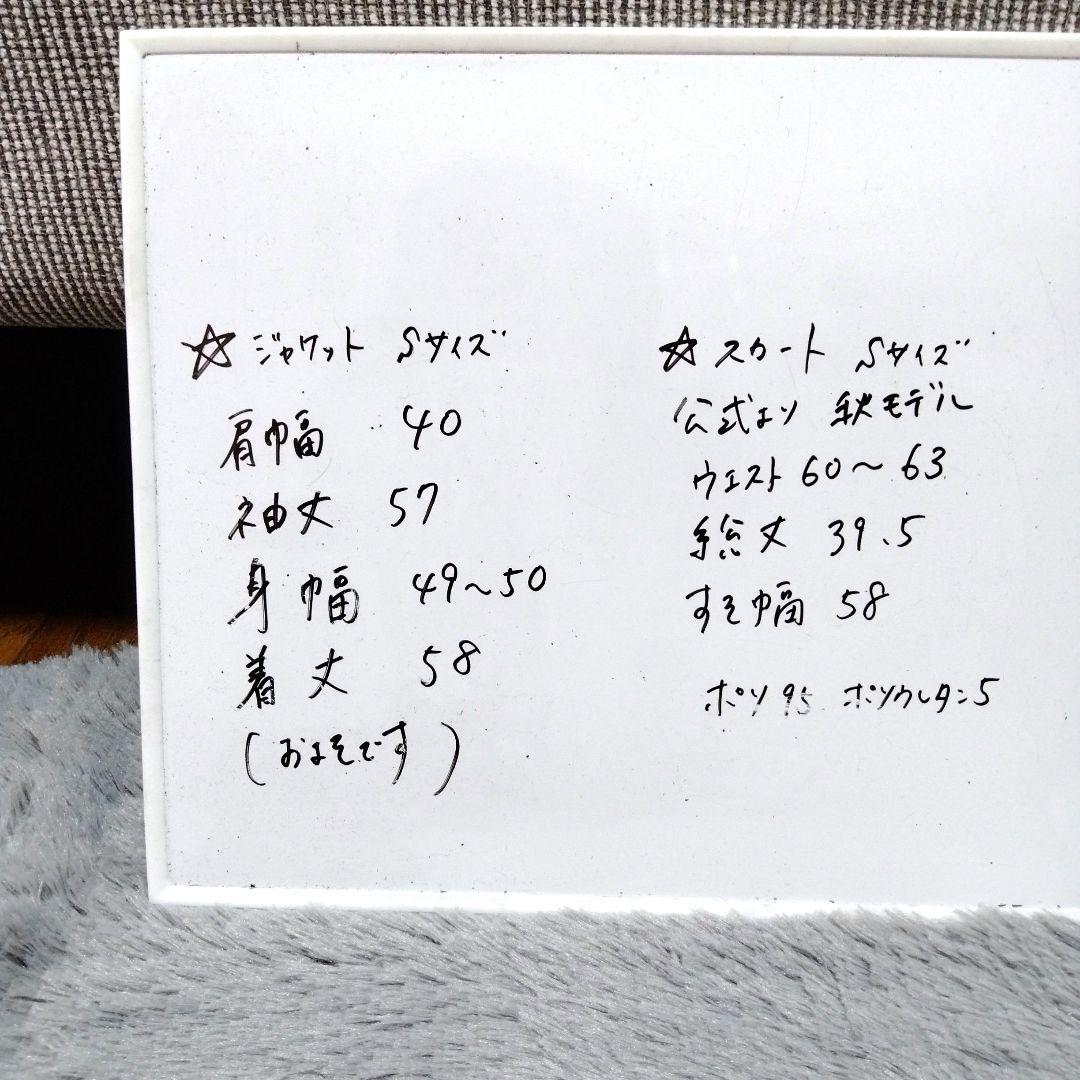 ☆ジャケット Sサイズ
肩幅 40
袖丈 57
身幅 49~50
着丈 58
(およそです)
☆スカート Sサイズ
公式より 秋モデル
ウエスト 60~63
総丈 39.5
すそ幅 58
ポリ95 ポリウレタン5